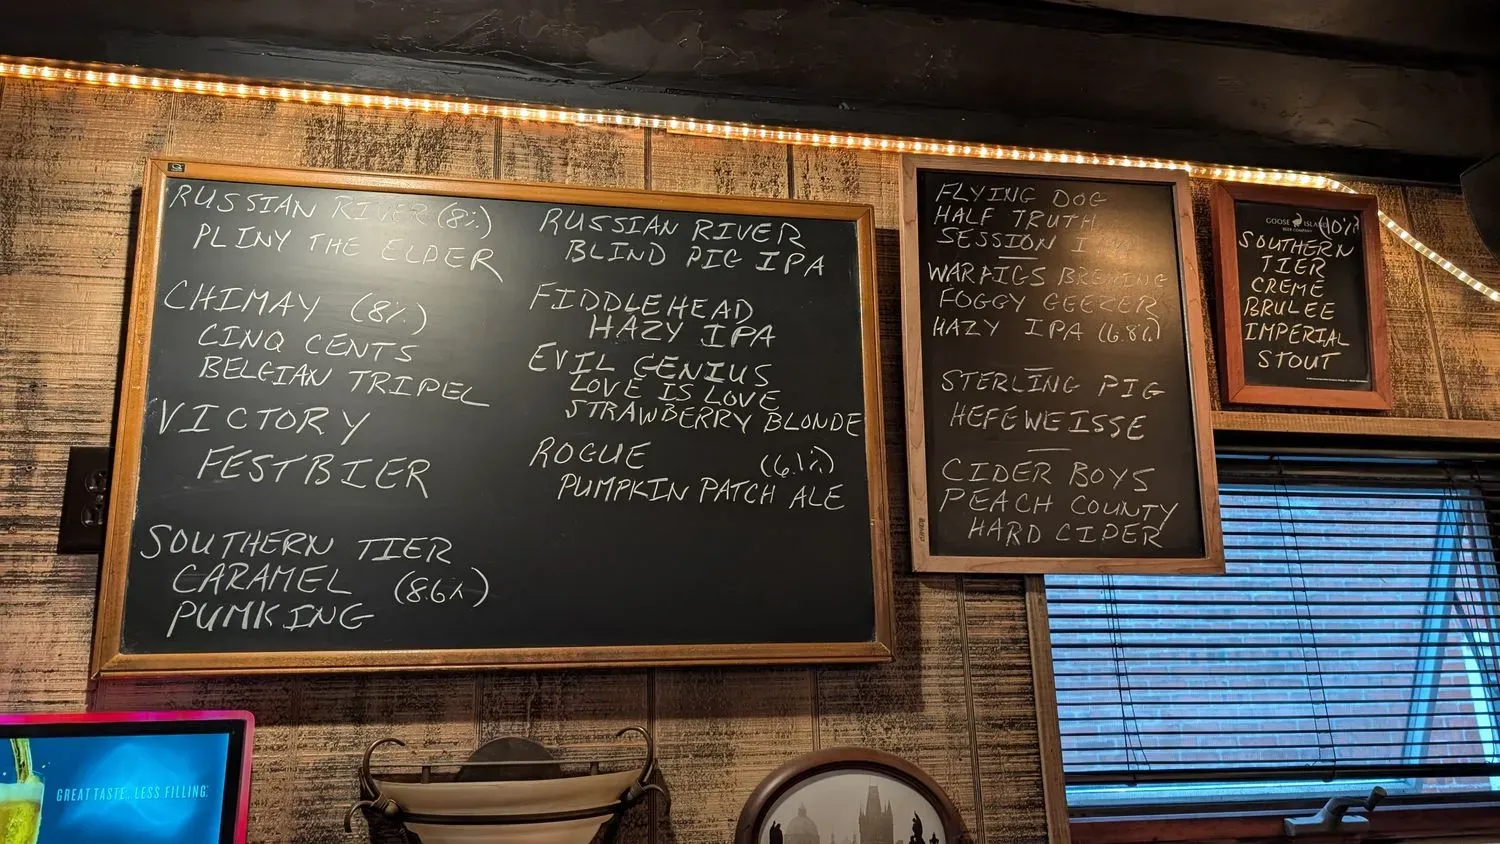 RUSSIAN RIVER (8%)
PLINY THE ELDER
CHIMAY (8%)
CINQ CENTS
BELGIAN TRIPEL
VICTORY
FESTBIER
SOUTHERN TIER
CARAMEL (8.6%)
PUMKING
RUSSIAN RIVER
BLIND PIG IPA
FIDDLEHEAD
HAZY IPA
EVIL GENIUS
LOVE IS LOVE
STRAWBERRY BLONDE
ROGUE (6.1%)
PUMPKIN PATCH ALE
FLYING DOG
HALF TRUTH
SESSION IPA
WARPIGS BREWING
FOGGY GEEZER
HAZY IPA (6.8%)
STERLING PIG
HEFEWEISSE
CIDER BOYS
PEACH COUNTY
HARD CIDER
GOOSE ISLAND (10%)
SOUTHERN
TIER
CREME
BRULEE
IMPERIAL
STOUT
GREAT TASTE...LESS FILLING.